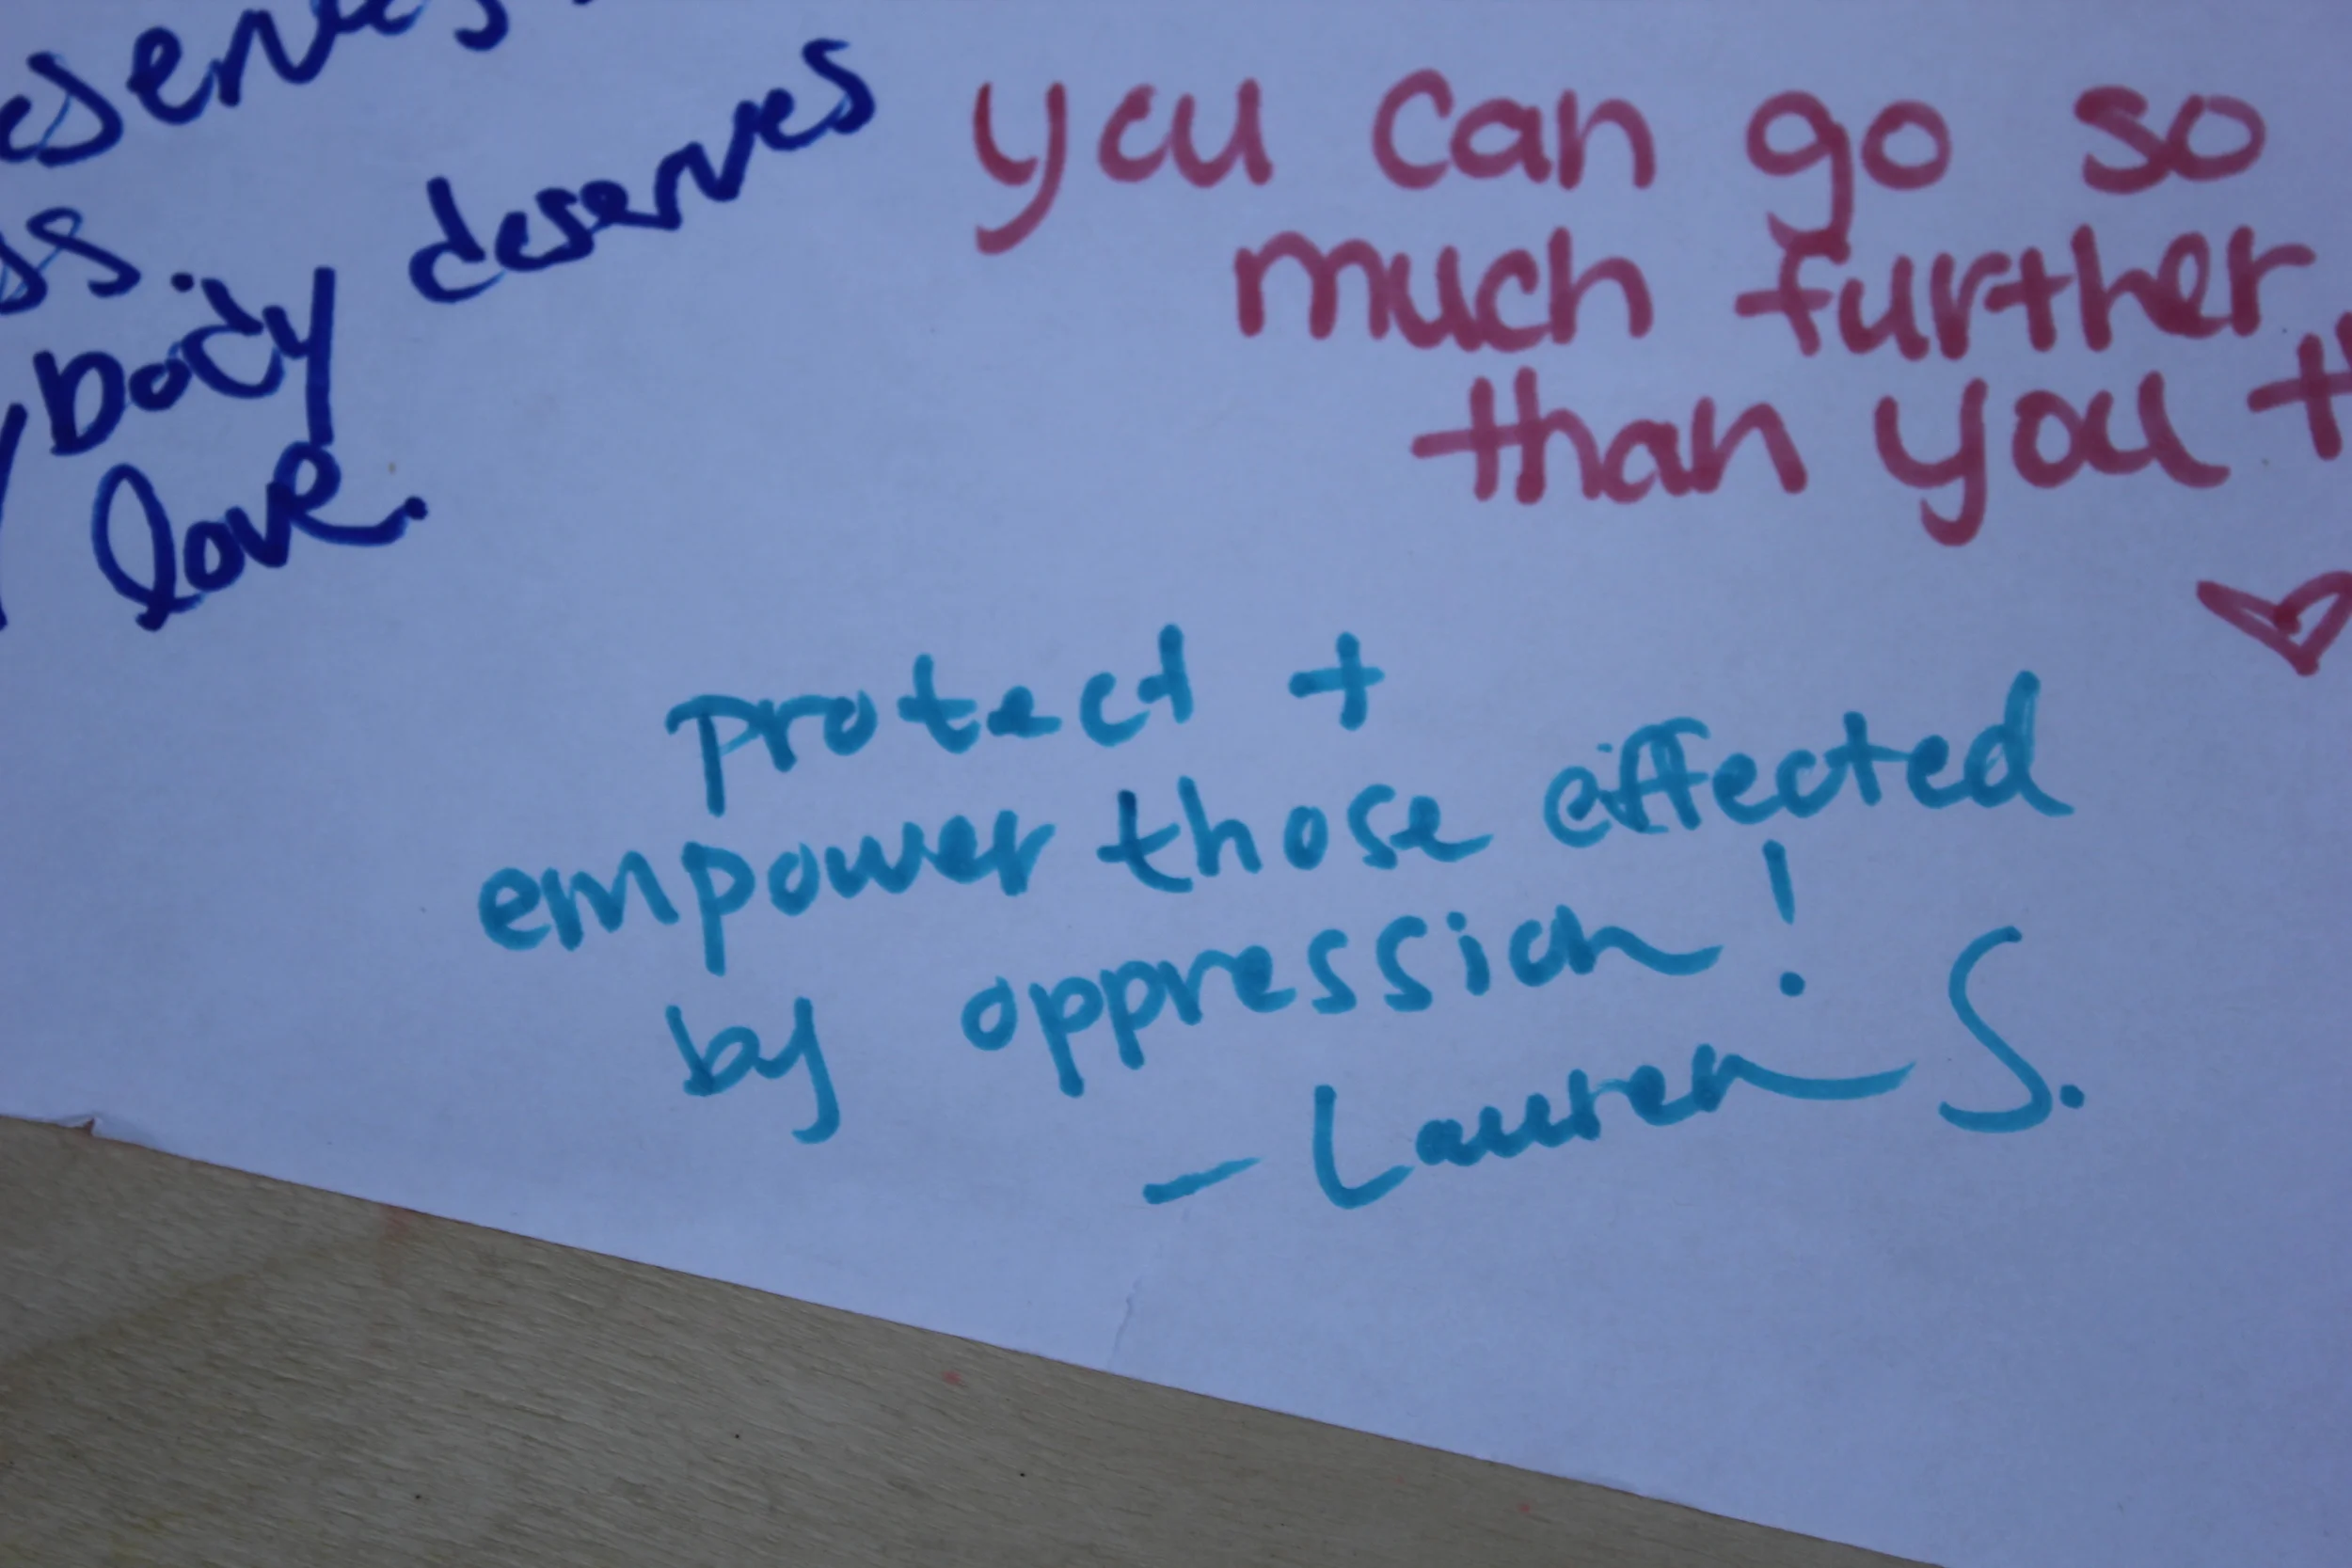 body deserves
love.
you can go so
much further
than you
protect +
empower those effected
by oppression!
- Lauren S.